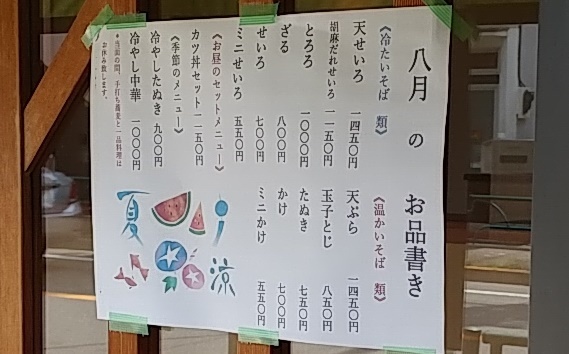 八月 の お品書き
《冷たいそば 類》
天せいろ 一四五〇円
胡麻だれせいろ 一一五〇円
とろろ 一〇〇〇円
ざる 八〇〇円
せいろ 七〇〇円
ミニせいろ 五五〇円
《温かいそば 類》
天ぷら 一四五〇円
玉子とじ 八五〇円
たぬき 七五〇円
かけ 七〇〇円
ミニかけ 五五〇円
《お昼のセットメニュー》
カツ丼セット 一一五〇円
《季節のメニュー》
冷やしたぬき 九〇〇円
冷やし中華 一〇〇〇円
*当面の間、手打ち蕎麦と一品料理は
お休み致します。
夏
涼